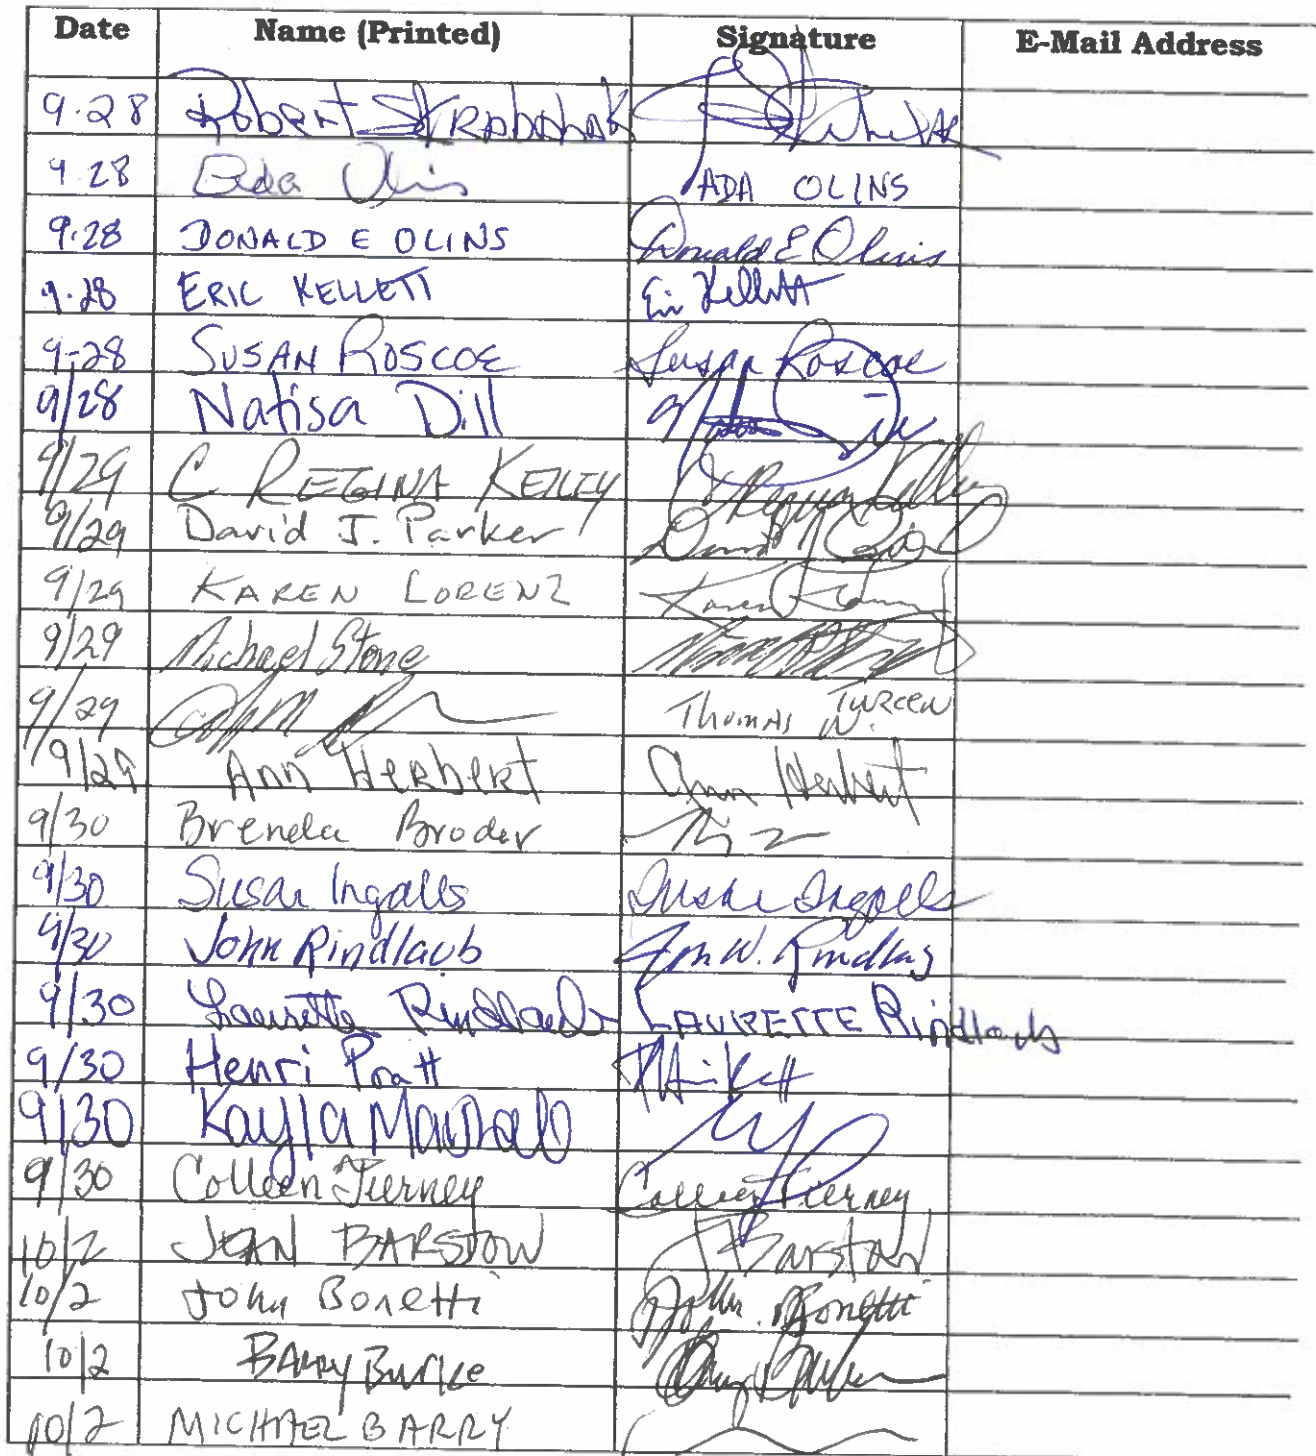 Date Name (Printed) Signature E-Mail Address
9.28 Robert
9.28 Ada Olins ADA OLINS
9.28 DONALD E OLINS Donald E Olins
9.28 ERIC KELLETT Eric Kellett
9-28 SUSAN ROSCOE Susan Roscoe
9/28 Natisa Dill
9/29 C REGINA KELLEY C Regina Kelley
9/29 David J. Parker
9/29 KAREN LORENZ Karen
9/29 Michael Stone
9/29 Thomas N. TURCEEN
9/29 Ann Herbert Ann Herbert
9/30 Brenda Broder
9/30 Susan Ingalls Susan Ingalls
9/30 John Rindlaub John W. Rindlaub
9/30 Laurette Rindlaub LAURETTE Rindlaub
9/30 Henri Pratt
9/30 Kayla
9/30 Colleen Tierney Colleen Tierney
10/2 JEAN BARSTOW J Barstow
10/2 John Bonetti John Bonetti
10/2 BARRY Burke
10/2 MICHAEL BARRY